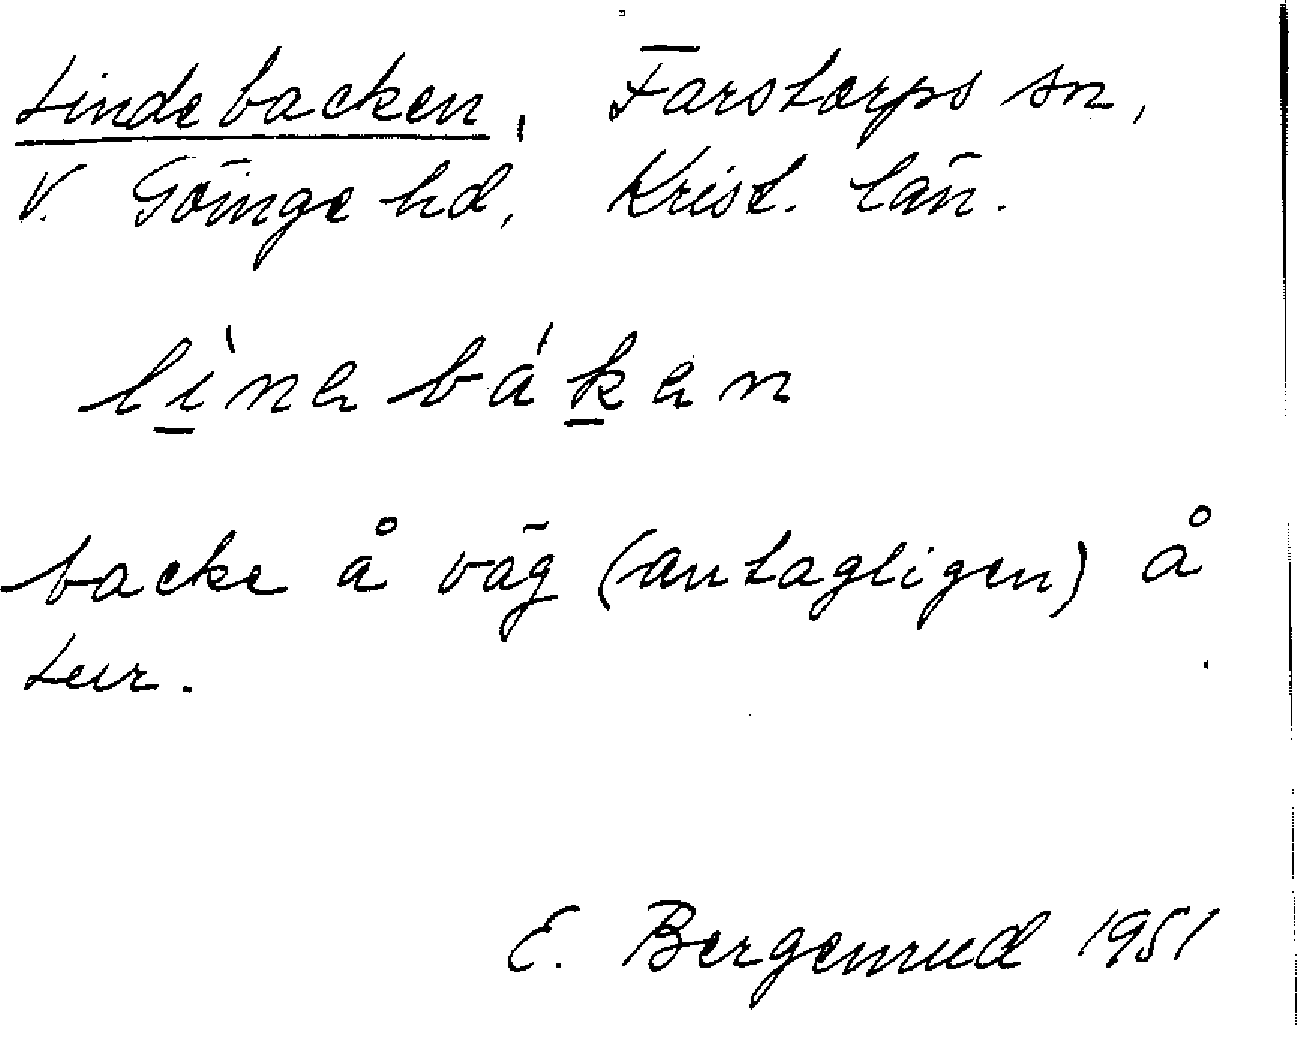 Lindebacken, Farstorps sn,
V. Göinge hd, Krist. län.
lìnəbákən
backe å väg (antagligen) å
tur.
E. Bergenrud 1951